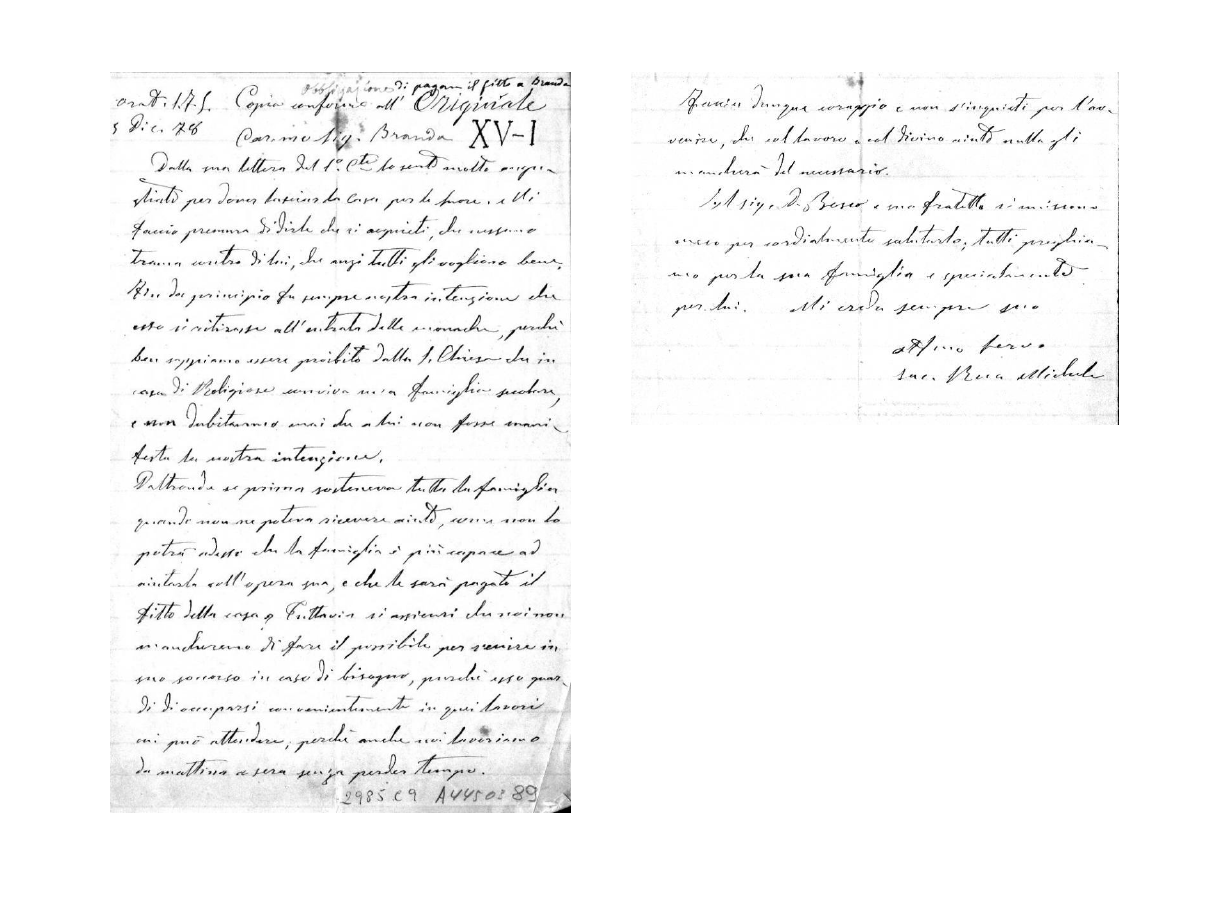 obbligazione di pagare il fitto a Branda
orat. S.F.S. Copia conforme all' Originale
5 Dic. 78 Carmo Sig. Branda XV-I
Dalla sua lettera del 1° Cte la sento molto
per dover lasciar la casa per le suore. Mi
faccio premura di dirle che si acquieti, che nessuno
trama contro di lui, che anzi tutti gli vogliono bene.
Fin da principio fu sempre nostra intenzione che
esso si ritirasse all'entrata delle monache, perché
ben sappiamo essere proibito dalla S. Chiesa che in
casa di Religiose conviva una famiglia secolare,
e non dubitammo mai che a lui non fosse mani-
festa la nostra intenzione.
D'altronde se prima sosteneva tutta la famiglia
quando non ne poteva ricevere aiuto, come non lo
potrà adesso che la famiglia è più capace ad
aiutarla coll'opera sua, e che le sarà pagato il
fitto della casa? Tuttavia si assicuri che noi non
mancheremo di fare il possibile per venire in
suo soccorso in caso di bisogno, purché esso guar-
di di occuparsi convenientemente in quei lavori
cui può attendere; perché anche noi lavoriamo
da mattina a sera senza perder tempo.
2985 C9 A4450389
Faccia dunque coraggio e non s'inquieti per l'av-
venire, che col lavoro e col divino aiuto nulla gli
mancherà del necessario.
Il sig. D. Bosco e suo fratello si uniscono
meco per cordialmente salutarlo; tutti preghia-
mo per la sua famiglia e specialmente
per lui. Mi creda sempre suo
Aff.mo servo
Sac. Rua Michele